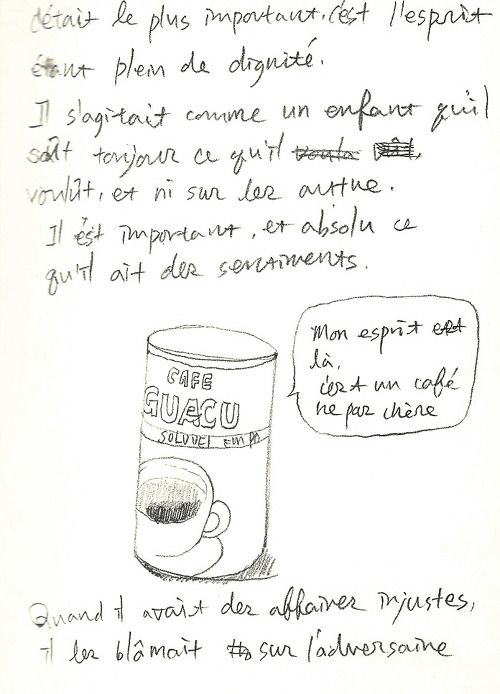 c'était le plus important. c'est l'esprit
étant plein de dignité.
Il s'agitait comme un enfant qu'il
soît toujour ce qu'il voula
voulût, et ni sur les auttue.
Il ést important, et absolu ce
qu'il ait des sentiments.
Mon esprit est
là,
c'est un café
ne par chère
CAFE
GUACU
SOLUVEL EM PÓ
Quand il avait des affaires injustes,
il les blâmait sur l'adversaire